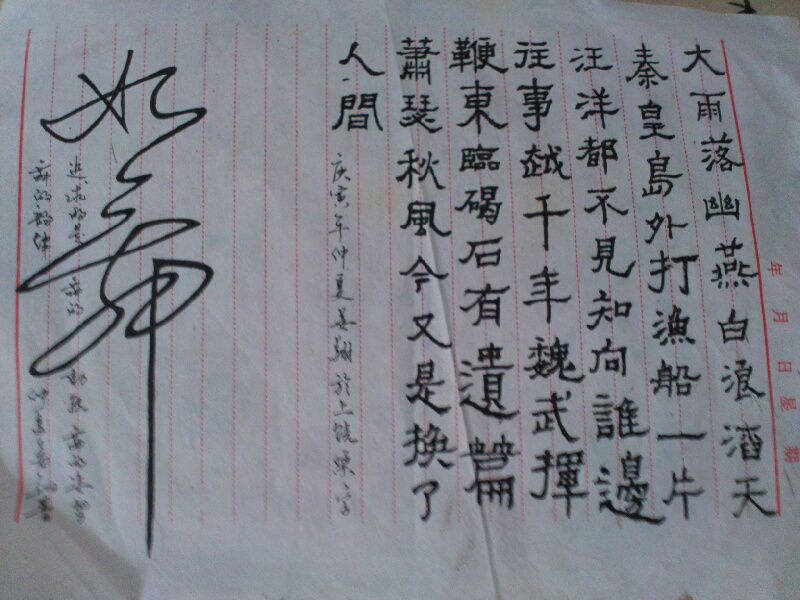 年月日星期
大雨落幽燕白浪滔天
秦皇島外打漁船一片
汪洋都不見知向誰邊
往事越千年魏武揮
鞭東臨碣石有遺篇
蕭瑟秋風今又是換了
人間
庚寅年仲夏於上饒
追求的是舞的
舞的韵律